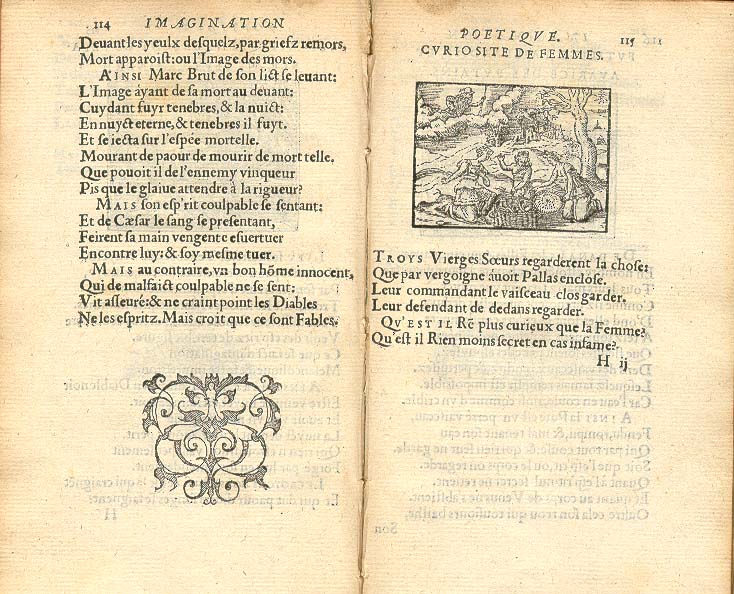 114 IMAGINATION
Deuant les yeulx desquelz, par griefz remors,
Mort apparoist: ou l'Image des mors.
AINSI Marc Brut de son lict se leuant:
L'Image áyant de sa mort au deuant:
Cuydant fuyr tenebres, & la nuict:
En nuyct eterne, & tenebres il fuyt.
Et se iecta sur l'espée mortelle.
Mourant de paour de mourir de mort telle.
Que pouoit il de l'ennemy vinqueur
Pis que le glaiue attendre à la rigueur?
MAIS son esp'rit coulpable se sentant:
Et de Cæsar le sang se presentant,
Feirent sa main vengente esuertuer
Encontre luy: & soy mesme tuer.
MAIS au contraire, vn bon hõme innocent,
Qui de malfaict coulpable ne se sent:
Vit asseuré: & ne craint point les Diables
Ne les espritz. Mais croit que ce sont Fables.
POETIQVE. 115
CVRIOSITE DE FEMMES.
TROYS Vierges Sœurs regarderent la chose:
Que par vergoigne áuoit Pallas enclose.
Leur commandant le vaisceau clos garder.
Leur defendant de dedans regarder.
QV'EST IL Rẽ plus curieux que la Femme?
Qu'est il Rien moins secret en cas infame?
H ij